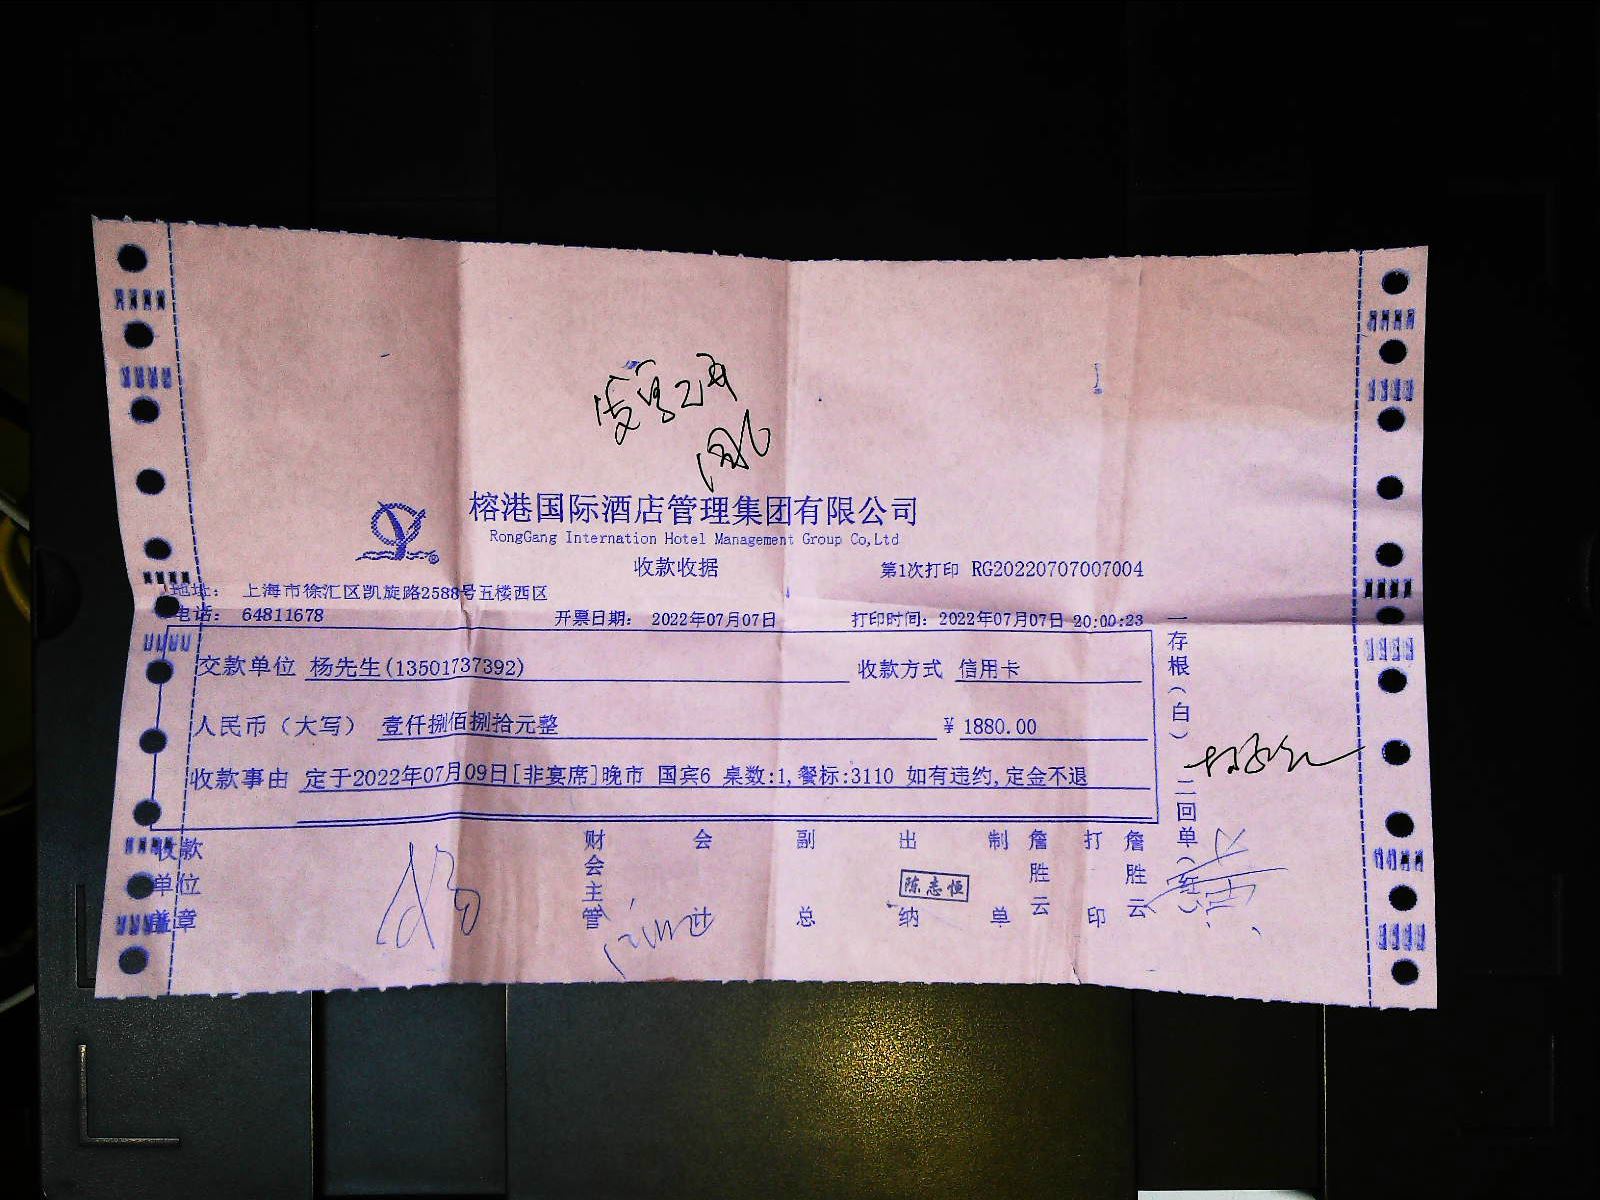 榕港国际酒店管理集团有限公司
RongGang Internation Hotel Management Group Co,Ltd
收款收据
第1次打印 RG20220707007004
地址: 上海市徐汇区凯旋路2588号五楼西区
电话: 64811678 开票日期: 2022年07月07日 打印时间: 2022年07月07日 20:00:23
交款单位 杨先生(13501737392) 收款方式 信用卡
人民币（大写） 壹仟捌佰捌拾元整 ¥ 1880.00
收款事由 定于2022年07月09日[非宴席]晚市 国宾6 桌数:1,餐标:3110 如有违约,定金不退
收款单位盖章
财会主管
会计
副总
出纳
陈志恒
制单
詹胜云
打印
詹胜云
一存根(白) 二回单(红)